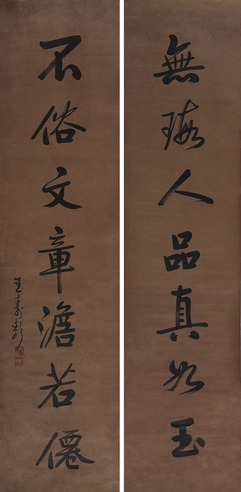 無瑕人品真如玉
不俗文章澹若僊
王壽彭